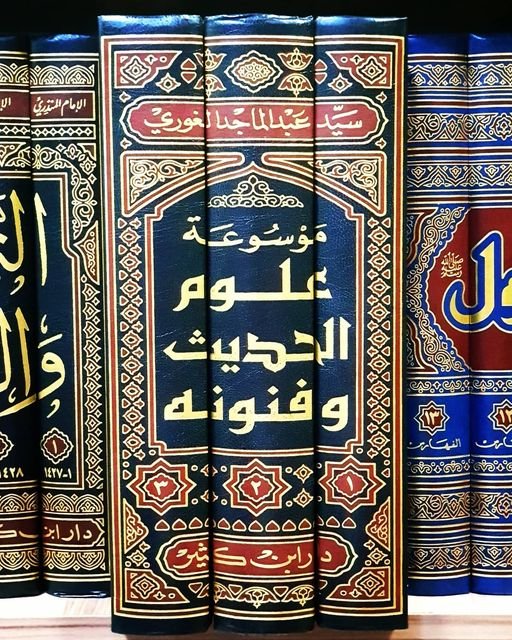 سيد عبد الماجد الغوري
موسوعة
علوم
الحديث
وفنونه
١ ٢ ٣
دار ابن كثير
الإمام المنذري
١
١-١٤٢٧
١٤٢٨
دار ابن كثير
صلى الله عليه وسلم
١٣
الفهارس